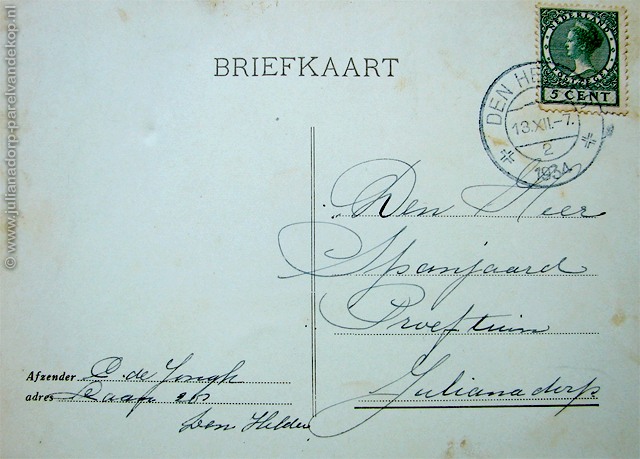 BRIEFKAART
NEDERLAND
5 CENT
DEN HE
13.XII.-7.
2
1934
Den Heer
Spanjaard
Proeftuin
Julianadorp
Afzender de Jongh
adres
Den Helder
© www.julianadorp-parelvandekop.nl